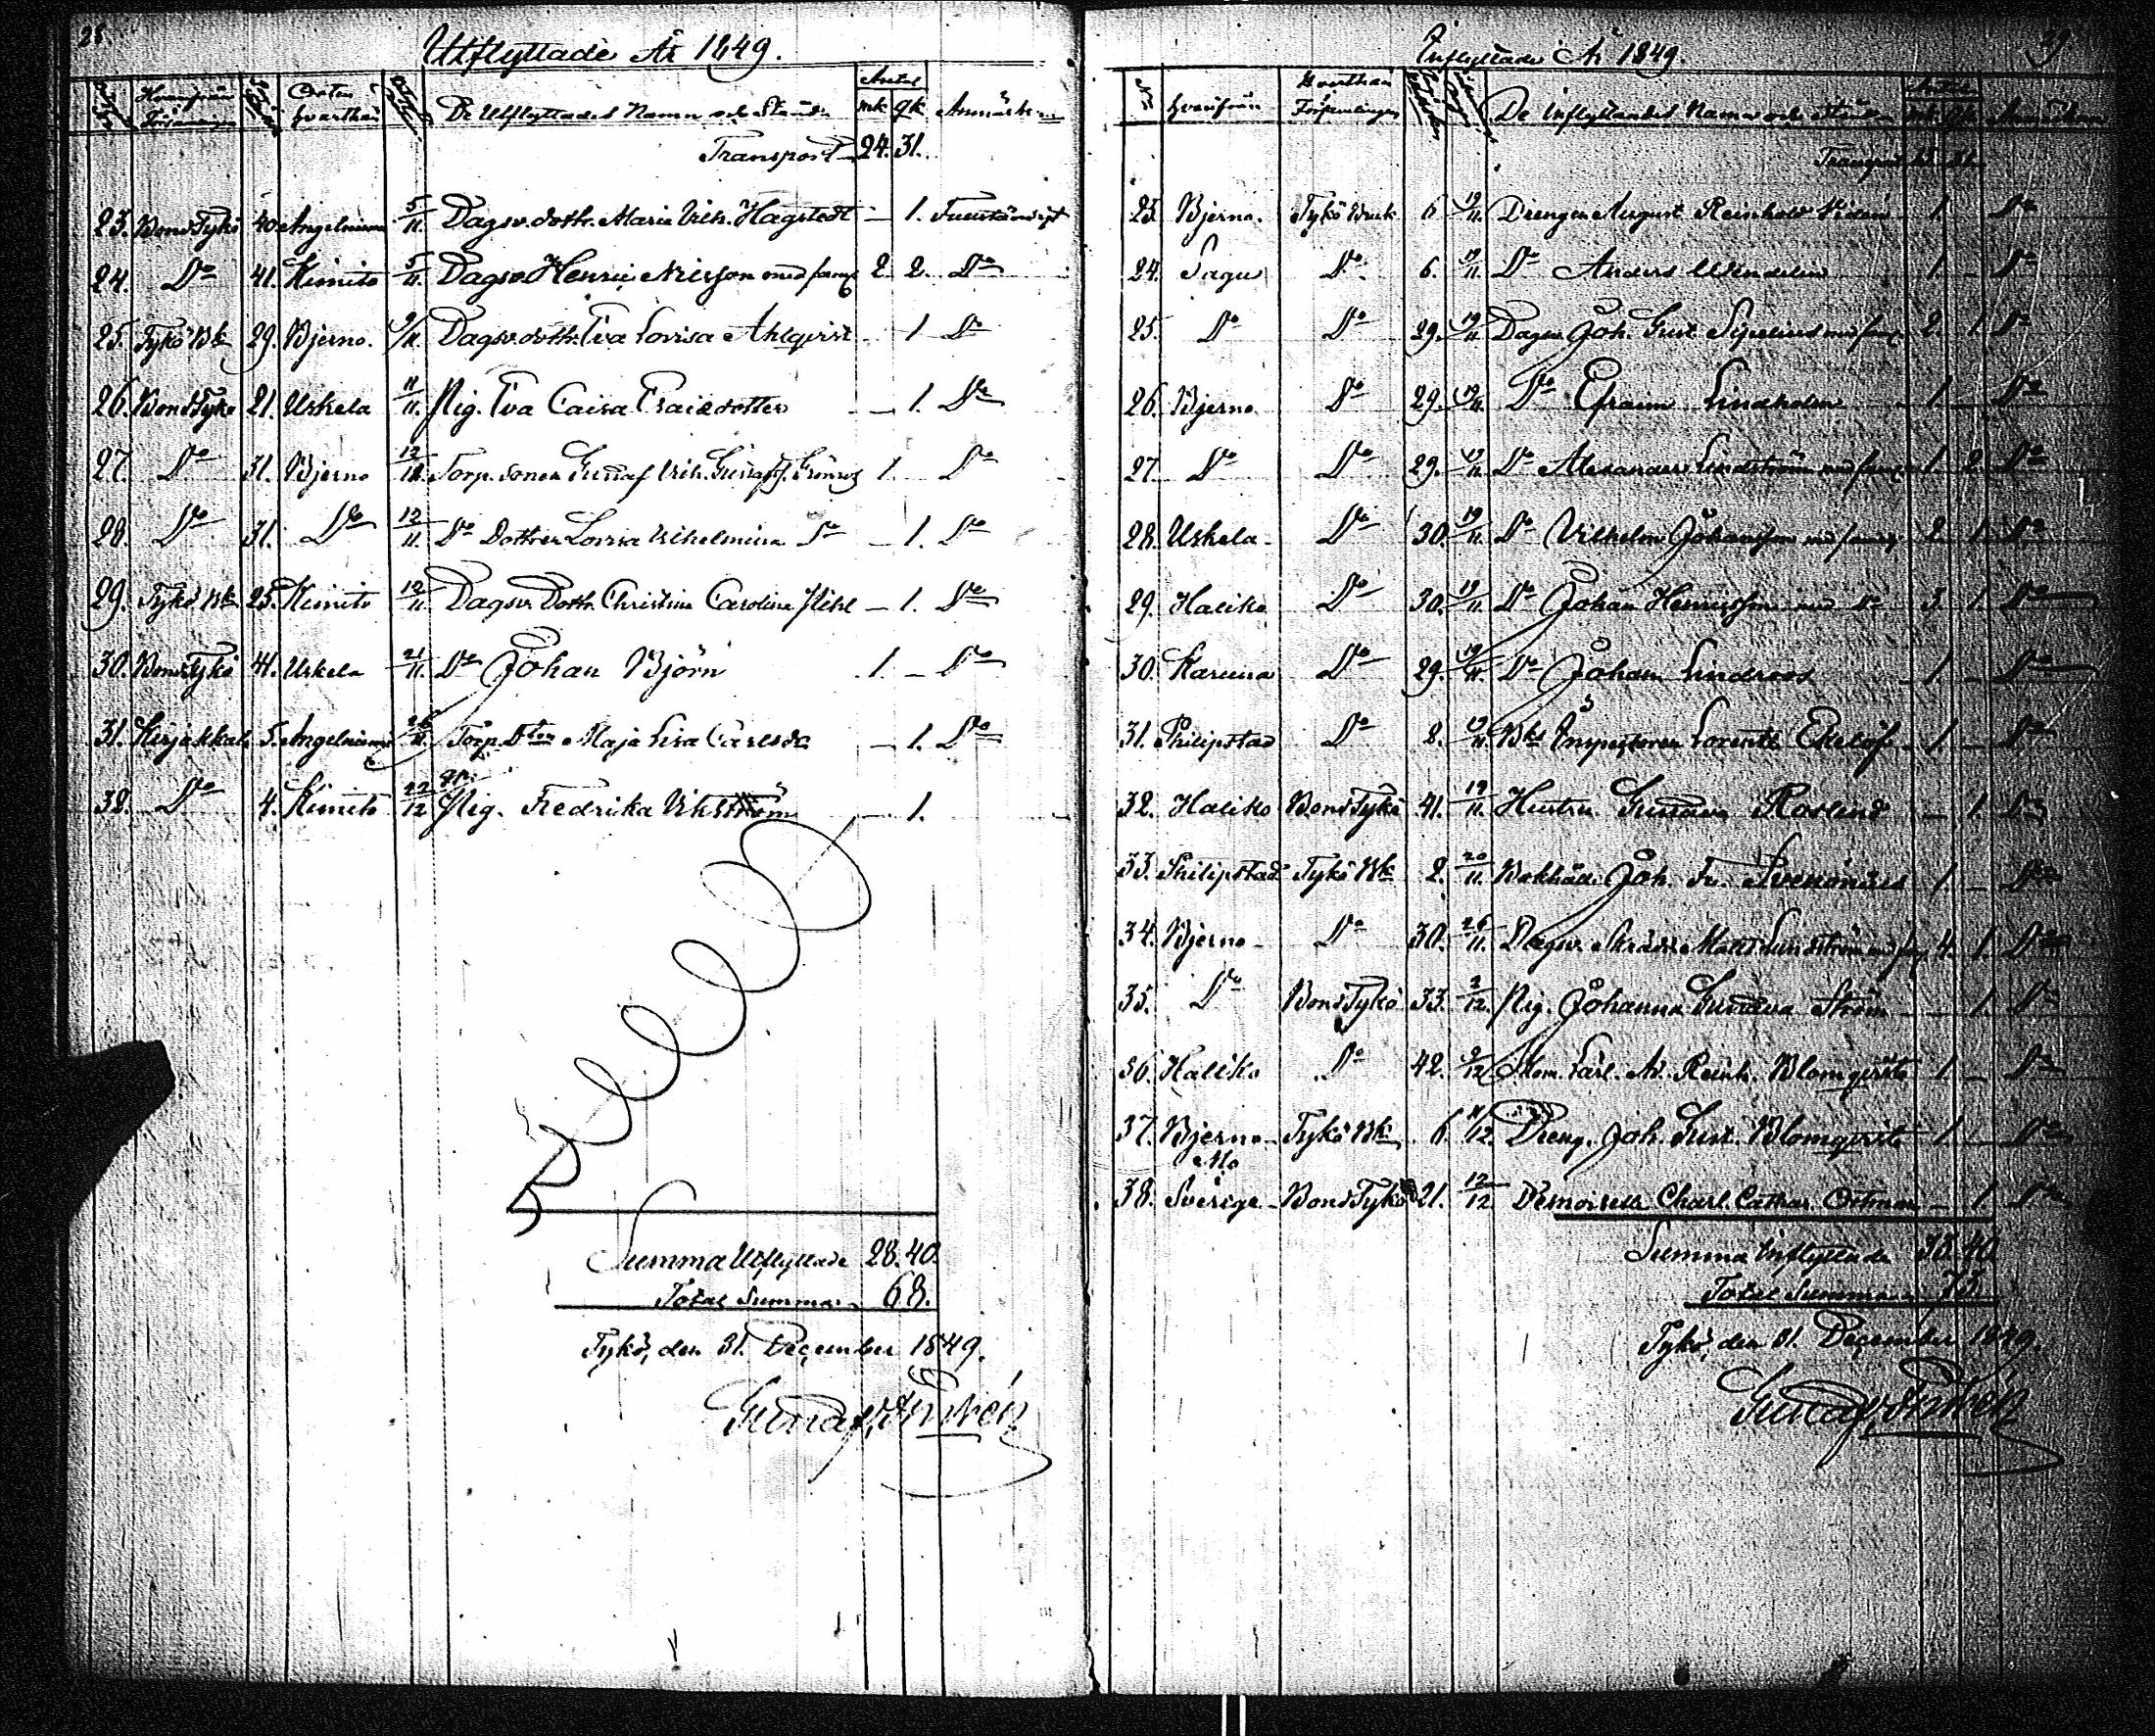 28.
Utflyttade År 1849.
De Utflyttades Namn och Stånd
Antal
mk qk
Transport 24. 31.
23. Bond Tykö 40 Angelniemi 5/11. Dagsv. dottr. Maria Vilh. Hagstedt — 1.
24. Do 41. Kimito 5/11. Dagsv. Henric Nilsson med famj 2. 2. Do
25. Tykö Bk 29. Bjerno. 9/11. Dagsv. dottr. Eva Lovisa Ahlqvist — 1 Do
26. Bond Tykö 21. Uskela 11/11. Pig. Eva Caisa Isaicsdotter — 1. Do
27. Do 31. Bjerno 12/11. Torp. sonen Gustaf Vilh. 1. — Do
28. Do 31. Do 12/11. Do Dottren Lovisa Vilhelmina Do — 1. Do
29. Tykö Bk 25. Kimito 12/11. Dagsv. Dottr. Christina Carolina Pihl — 1. Do
30. Bond Tykö 41. Uskela 21/11. Do Johan Björn 1. — Do
31. Kirjakkala 5. Angelniemi Torp. Dtren Maja Lisa Carlsdr — 1. Do
32. Do 4. Kimito 22/12 Pig. Fredrika Vikström — 1.
Summa Utflyttade 28. 40.
Total Summa 68.
Tykö, den 31. December 1849.
Gustaf
Inflyttade År 1849.
29
No Hvarifrån
De Inflyttandes Namn och Stånd
Transport
23. Bjerno. Tykö Bruk 6 19/11. Drengen August Reinhold 1. — Do
24. Sagu Do 6. 19/11. Do Anders Wendelin 1. — Do
25. Do Do 29. 19/11. Dagsv. Joh. Gust. med famj. 2. 1. Do
26. Bjerno Do 29. 19/11. Do Efraim Lindholm 1. — Do
27. Do Do 29. 19/11. Do Alexander Lindström med famj. 1. 2. Do
28. Uskela Do 30. 19/11. Do Vilhelm Johansson med famj. 2. 1. Do
29. Haliko Do 30. 19/11. Do Johan Henricsson med Do 3. 1. Do
30. Karuna Do 29. 19/11. Do Johan Lindroos 1. — Do
31. Philipstad Do 2. 19/11. Bks Inspectoren Lorentz Ekelöf 1. — Do
32. Haliko Bond Tykö 41. 19/11. Hustru Gustava Roslund — 1. Do
33. Philipstad Tykö Bk 2. 20/11. Bokhåll. Joh. Fr. 1. — Do
34. Bjerno Do 30. 26/11. Dagsv. Matts Lundström med famj. 4. 1. Do
35. Do Bond Tykö 33. 2/12. Pig. Johanna Gustava Ström — 1. Do
36. Haliko Do 42. 9/12 Skom. Lärl. Ad. Reinh. Blomqvist 1. — Do
37. Bjerno Tykö Bk 6. 11/12. Dreng. Joh. Gust. Blomqvist 1. — Do
Mo
38. Sverige Bond Tykö 21. 12/12 Demoiselle Charl. Cathar. Ortman — 1. Do
Summa Inflyttade 33. 40
Total Summa 73.
Tykö, den 31. December 1849.
Gustaf